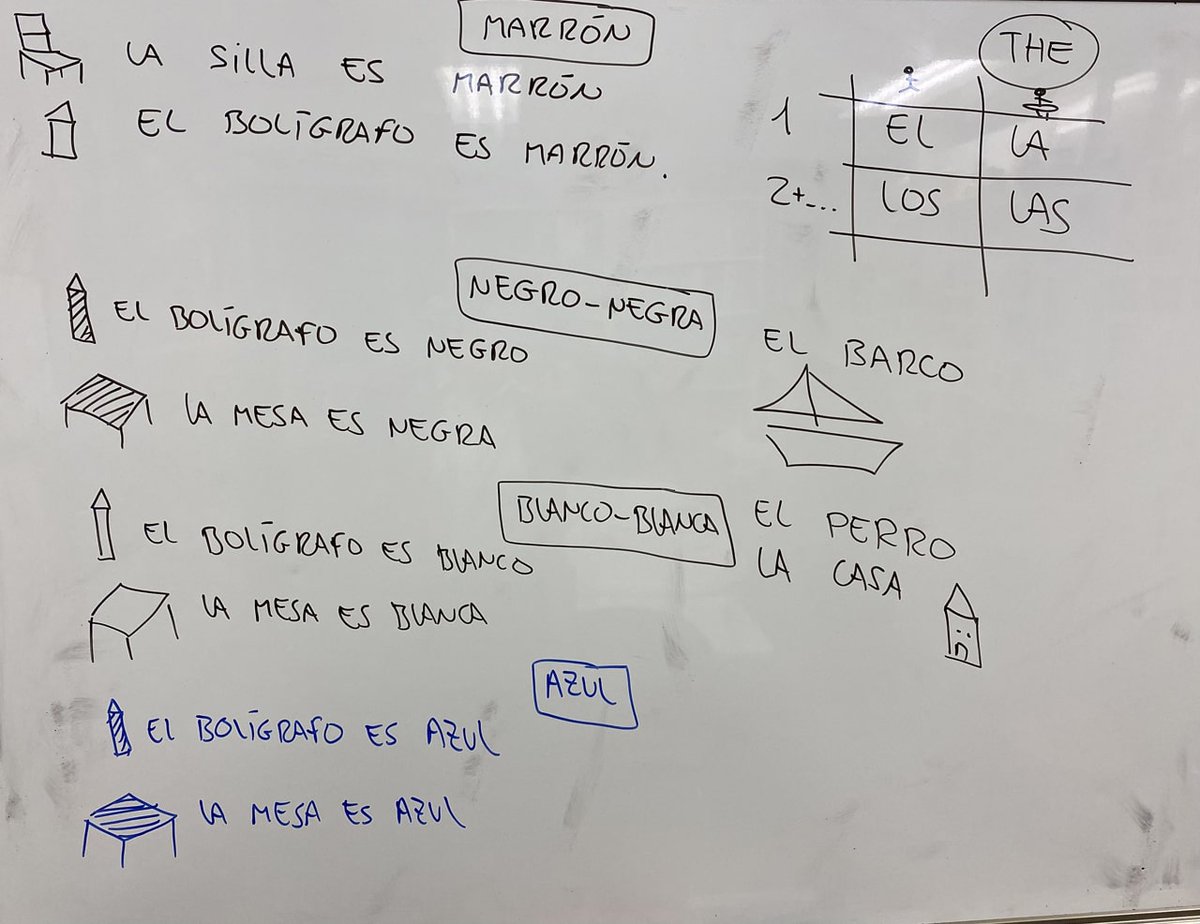 MARRÓN
LA SILLA ES MARRÓN
EL BOLÍGRAFO ES MARRÓN.
THE
1 EL LA
2+... LOS LAS
NEGRO-NEGRA
EL BOLÍGRAFO ES NEGRO
LA MESA ES NEGRA
EL BARCO
BLANCO-BLANCA
EL BOLÍGRAFO ES BLANCO
LA MESA ES BLANCA
EL PERRO
LA CASA
AZUL
EL BOLÍGRAFO ES AZUL
LA MESA ES AZUL